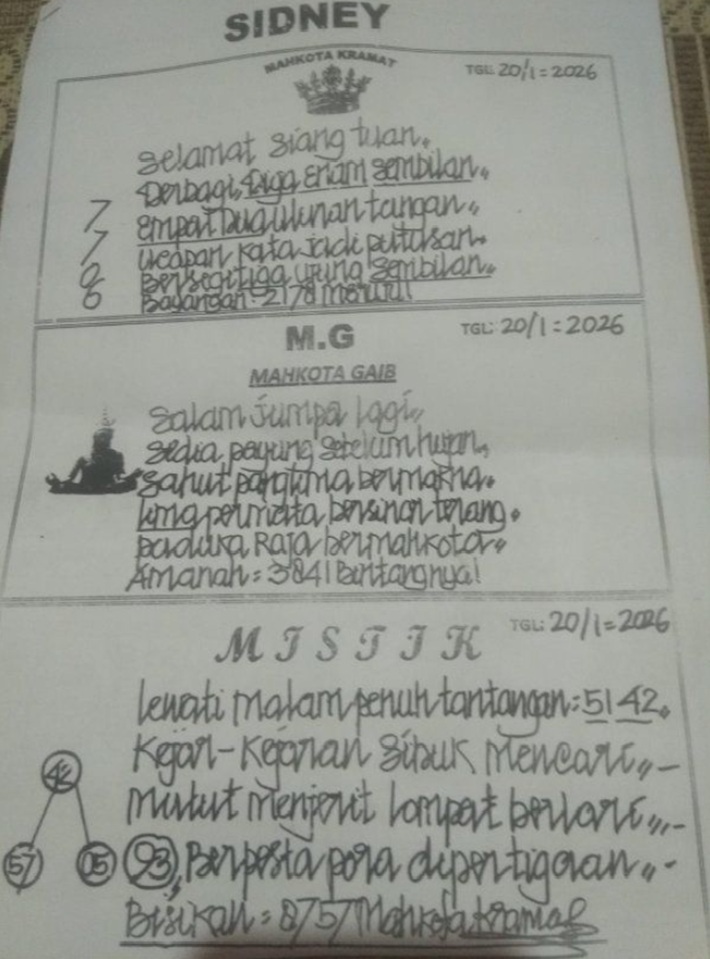 SIDNEY
MAHKOTA KRAMAT
TGL: 20/1=2026
Selamat siang tuan..
Berbagi, Tiga Enam sembilan..
7 Empat Dua uluran tangan..
7 Ucapan kata jadi putusan.
0 Bersegitiga ujung sembilan.
6 Bayangan: 2178 Menuju!
M.G
TGL: 20/1=2026
MAHKOTA GAIB
Salam jumpa lagi..
sedia payung sebelum hujan,
Sahut panglima bermakna.
lima permata bersinar terang.
paduka Raja bermahkota..
Amanah=3841 Bintangnya!
MISTIK
TGL: 20/1=2026
lewati malam penuh tantangan: 5142.
Kejar-Kejaran Sibuk Mencari..-
Mulut Menjerit lompat berlari..-
42
57 05 93, Berpesta pora dipertigaan..-
Bisikan=8757 Mahkota Kramat